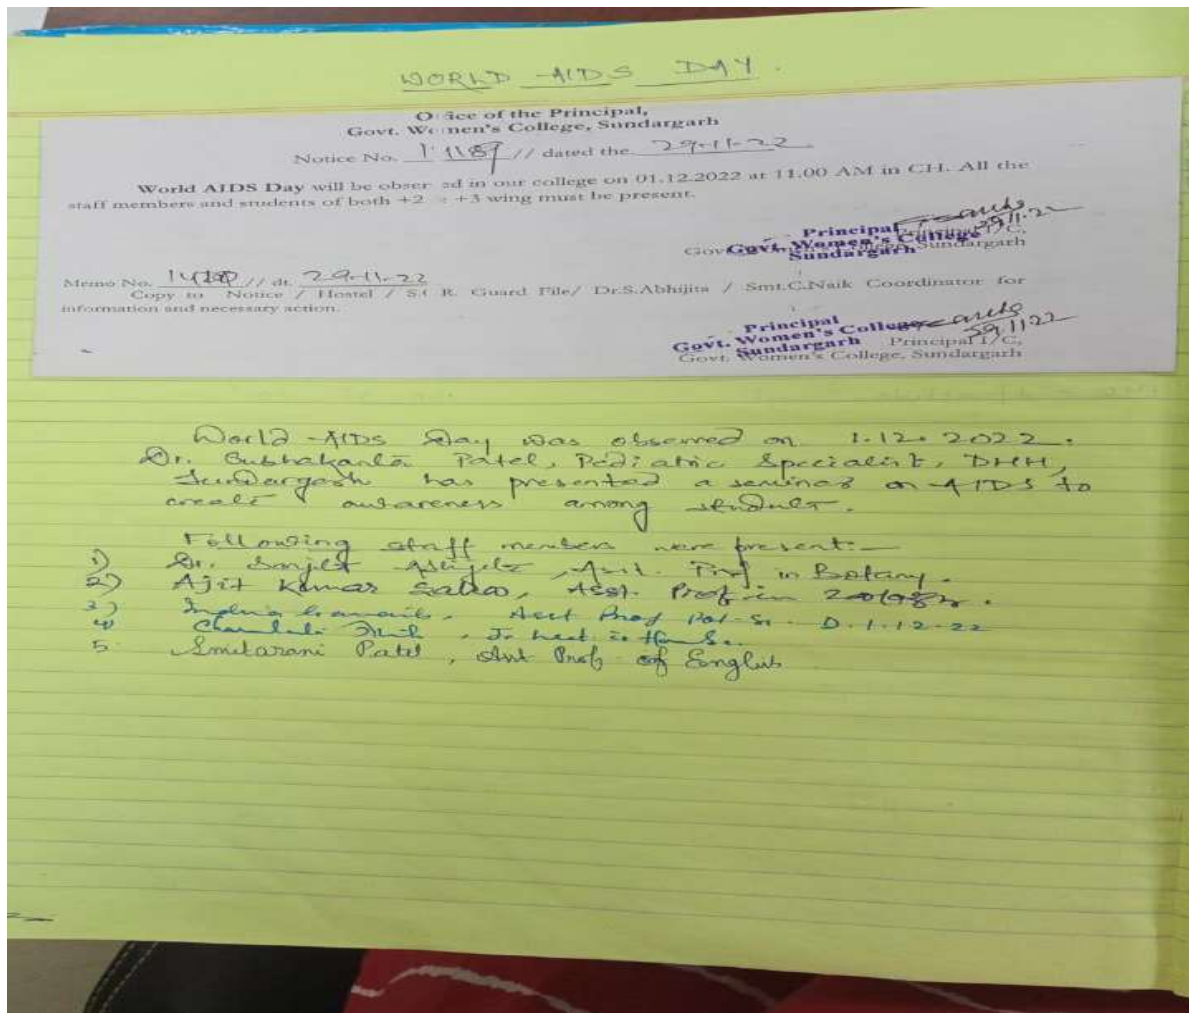 WORLD AIDS DAY.
Office of the Principal,
Govt. Women's College, Sundargarh
Notice No. // dated the 29-11-22
World AIDS Day will be observed in our college on 01.12.2022 at 11.00 AM in CH. All the
staff members and students of both +2 & +3 wing must be present.
Principal
Govt. Women's College
Sundargarh
29.11.22
Principal I/C,
Govt. Women's College, Sundargarh
Memo No. // dt. 29-11-22
Copy to Notice / Hostel / S.C.R. Guard File/ Dr.S.Abhijita / Smt.C.Naik Coordinator for
information and necessary action.
Principal
Govt. Women's College
Sundargarh
29.11.22
Principal I/C,
Govt. Women's College, Sundargarh
World AIDS Day was observed on 1.12.2022.
Dr. Patel, Pediatric Specialist, DHH,
Sundargarh has presented a seminar on AIDS to
create awareness among student.
Following staff members were present:-
1) Dr. , Asst. Prof in Botany.
2) Ajit Kumar , Asst. Prof in
3) Asst Prof Pol. Sc. D. 1.12.22
4)
5. Smitarani Patel, Asst Prof of English